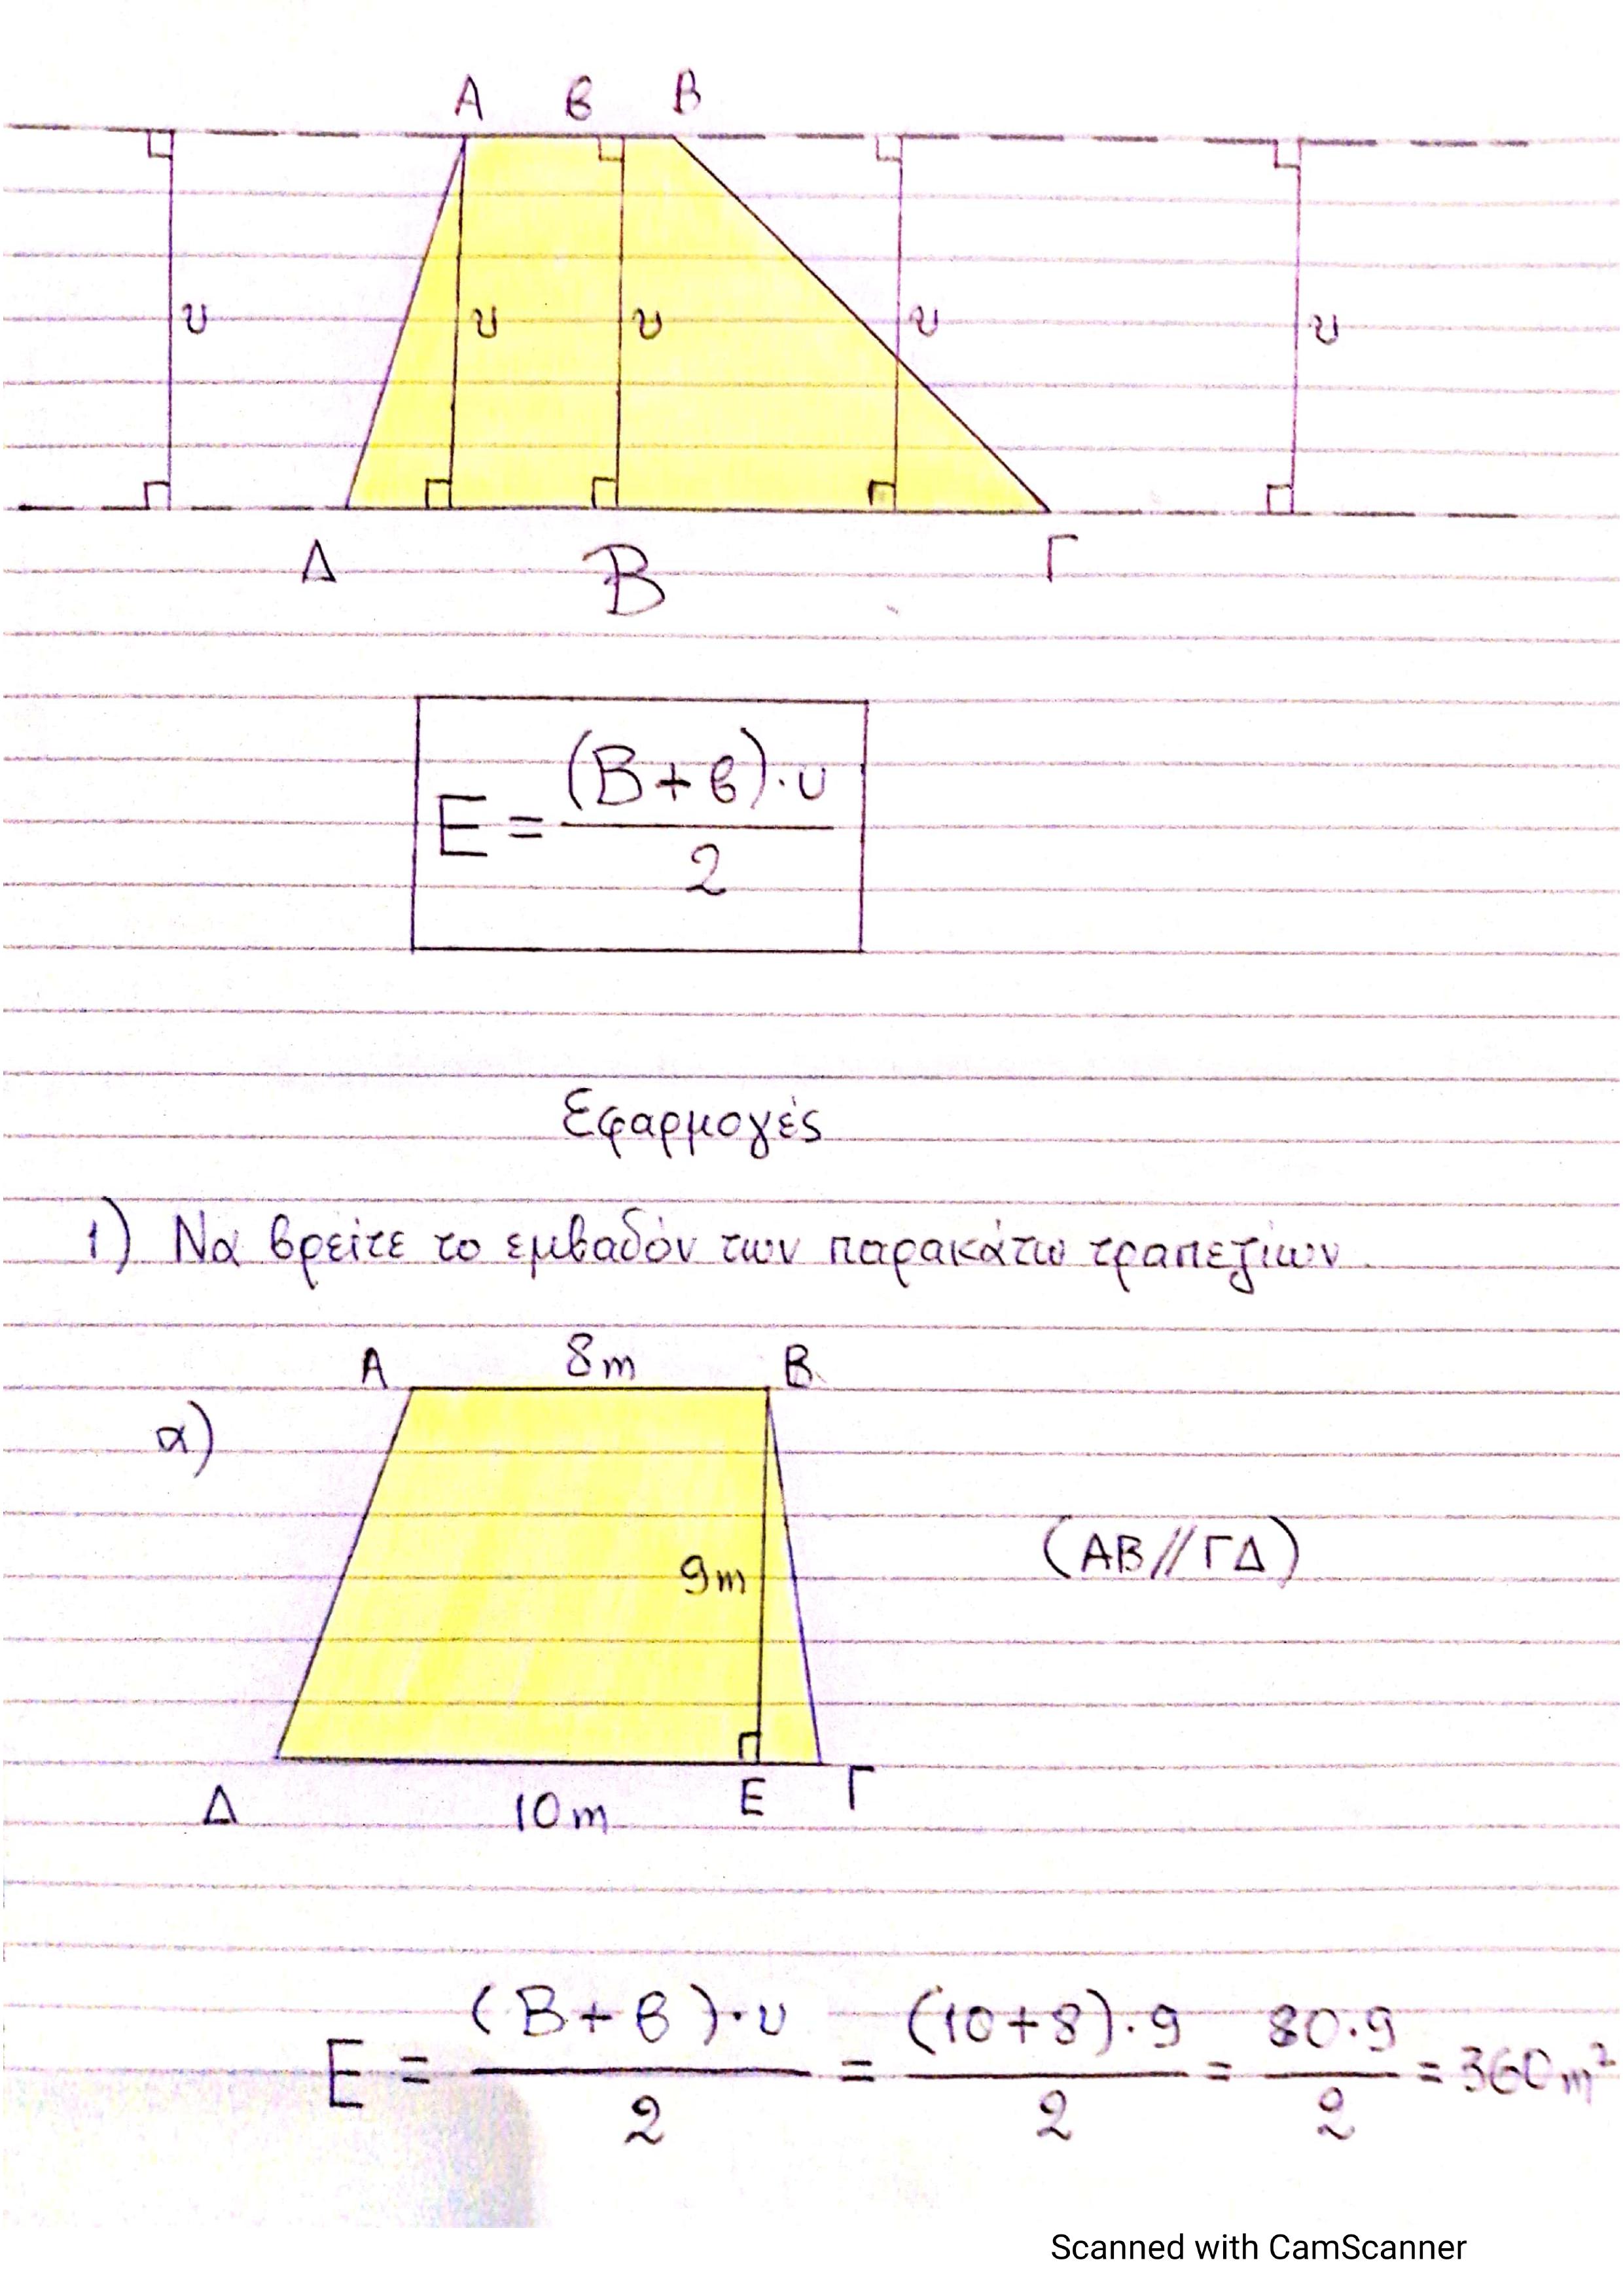 Α β Β
υ υ υ υ υ
Δ Β Γ
Ε = (Β + β) · υ / 2
Εφαρμογές
1) Να βρείτε το εμβαδόν των παρακάτω τραπεζίων
Α 8m Β
α)
9m (ΑΒ//ΓΔ)
Δ 10m Ε Γ
Ε = (Β + β) · υ / 2 = (10+8) · 9 / 2 = 80 · 9 / 2 = 360 m²
Scanned with CamScanner